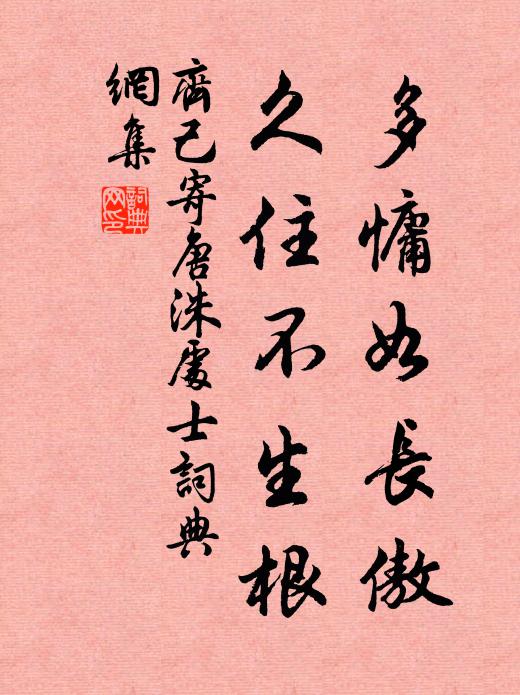 多慵如長傲
久住不生根
齊己寄唐洙處士詞典
網集
詞典
网印